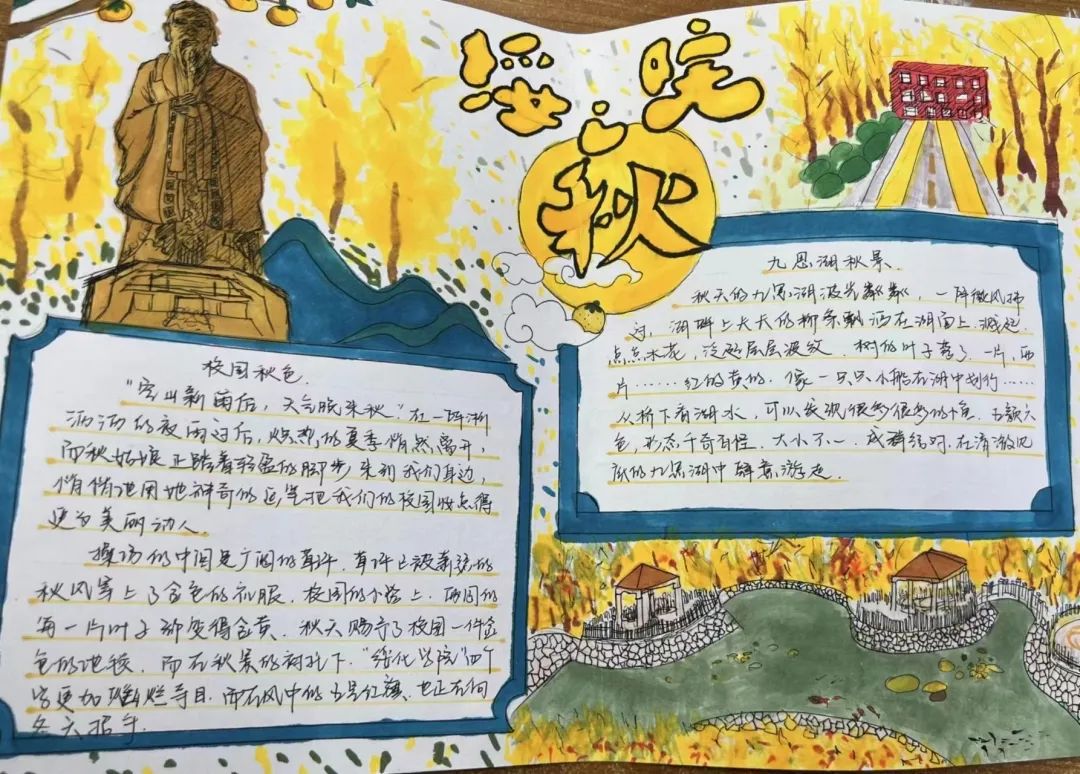 绥院之秋
校园秋色.
"空山新雨后，天气晚来秋"在一阵淅
沥沥的夜雨过后，炽热的夏季悄然离开，
而秋姑娘正踏着轻盈的脚步来到我们身边，
悄悄地用她神奇的画笔把我们的校园妆点得
更为美丽动人.
操场的中间是广阔的草坪.草坪已被萧瑟的
秋风穿上了金色的衣服.校园的小路上.两周的
每一片叶子都变得金黄.秋天赐予了校园一件金
色的地毯.而在秋景的衬托下."绥化学院"四个
字更加璀璨夺目.而在风中的五星红旗,也正在向
冬天招手.
九思湖秋景.
秋天的九思湖波光粼粼,一阵微风拂
过.湖畔上大大的柳条飘洒在湖面上.溅起
点点水花,泛起层层波纹.树的叶子落了.一片,两
片……红的黄的.像一只只小船在湖中划行……
从桥下看湖水,可以发现很多很多的鱼.五颜六
色,形态千奇百怪.大小不一.成群结对.在清澈见
底的九思湖中肆意游走.